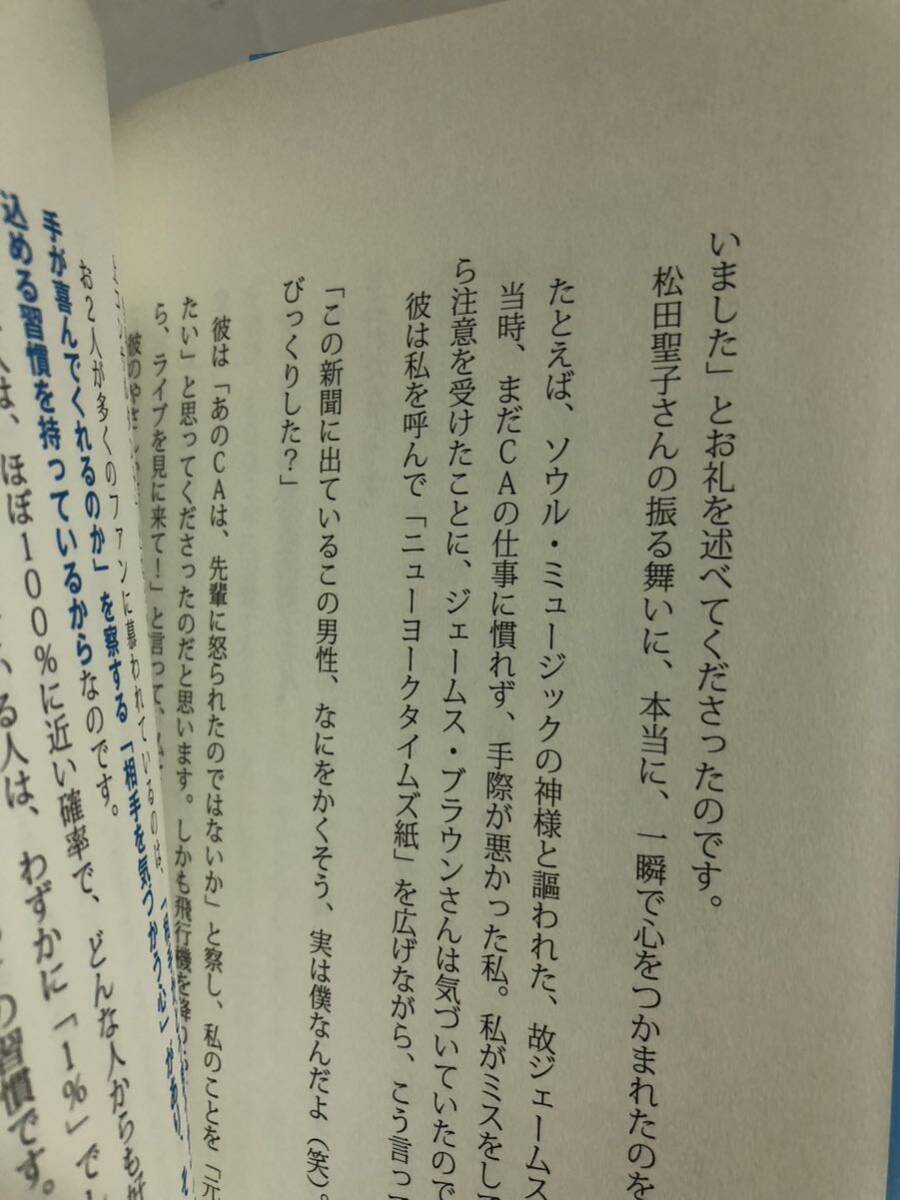 いました」とお礼を述べてくださったのです。
松田聖子さんの振る舞いに、本当に、一瞬で心をつかまれたのを
たとえば、ソウル・ミュージックの神様と謳われた、故ジェームス
当時、まだCAの仕事に慣れず、手際が悪かった私。私がミスをして
ら注意を受けたことに、ジェームス・ブラウンさんは気づいていたので
彼は私を呼んで「ニューヨークタイムズ紙」を広げながら、こう言って
「この新聞に出ているこの男性、なにをかくそう、実は僕なんだよ(笑)。
びっくりした?」
彼は「あのCAは、先輩に怒られたのではないか」と察し、私のことを「元
たい」と思ってくださったのだと思います。しかも飛行機を降り
ら、ライブを見に来て!」と言って、
彼のやさしい
お2人が多くのファンに慕われているのは、「相手を気づかう心」があり、
手が喜んでくれるのか」を察する「相手を気づかう心」
込める習慣を持っているからなのです。
は、ほぼ100%に近い確率で、どんな人からも好
る人は、わずかに「1%」で
の習慣です。